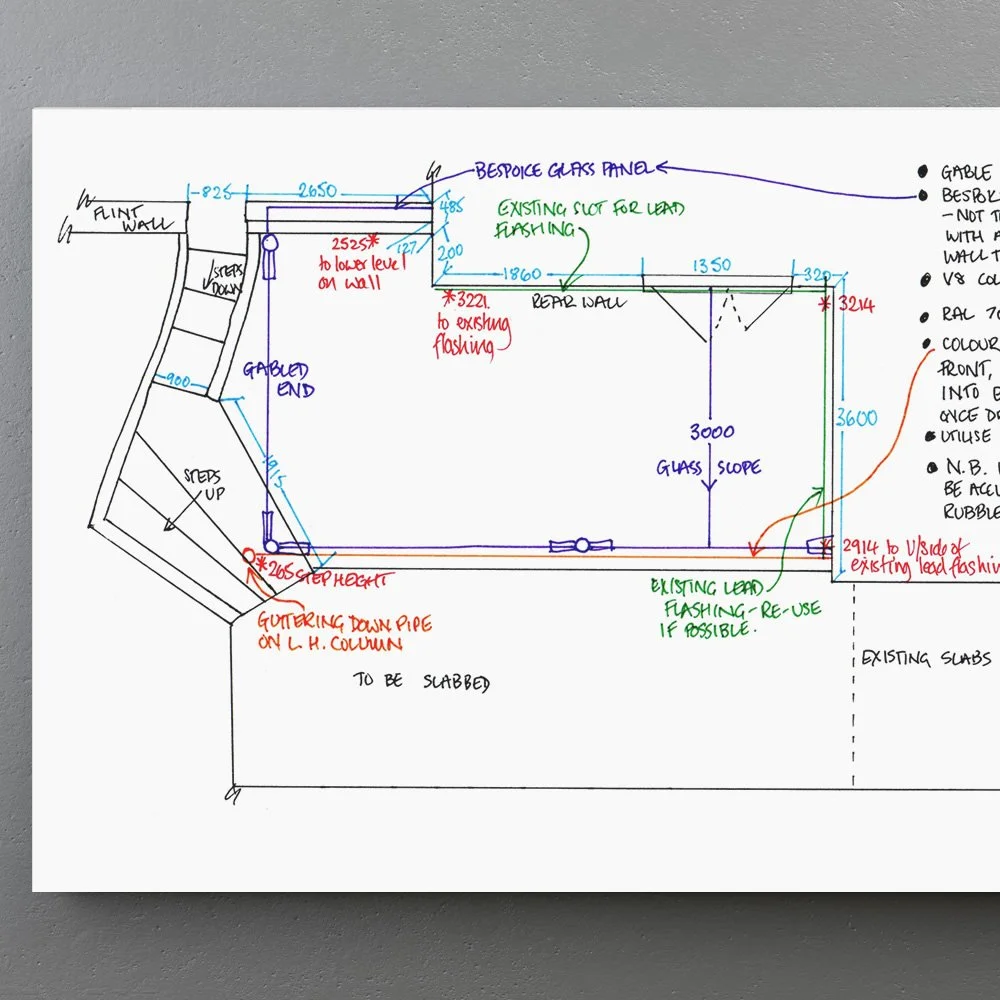 825
2650
BESPOKE GLASS PANEL
FLINT
WALL
485
EXISTING SLOT FOR LEAD
FLASHING
2525*
to lower level
on wall
127
200
STEPS
DOWN
1860
1350
320
*3221
to existing
flashing
REAR WALL
* 3214
GABLED
END
900
3600
3000
GLASS SLOPE
1915
STEPS
UP
*265 STEP HEIGHT
* 2914 to U/side of
existing lead flashin
EXISTING LEAD
FLASHING - RE-USE
IF POSSIBLE.
GUTTERING DOWN PIPE
ON L.H. COLUMN
TO BE SLABBED
EXISTING SLABS
• GABLE
• BESPOK
- NOT T
WITH A
WALL T
• V8 COL
• RAL 70
• COLOUR
FRONT,
INTO E
ONCE DR
• UTILISE
• N.B.
BE ACCU
RUBBLE